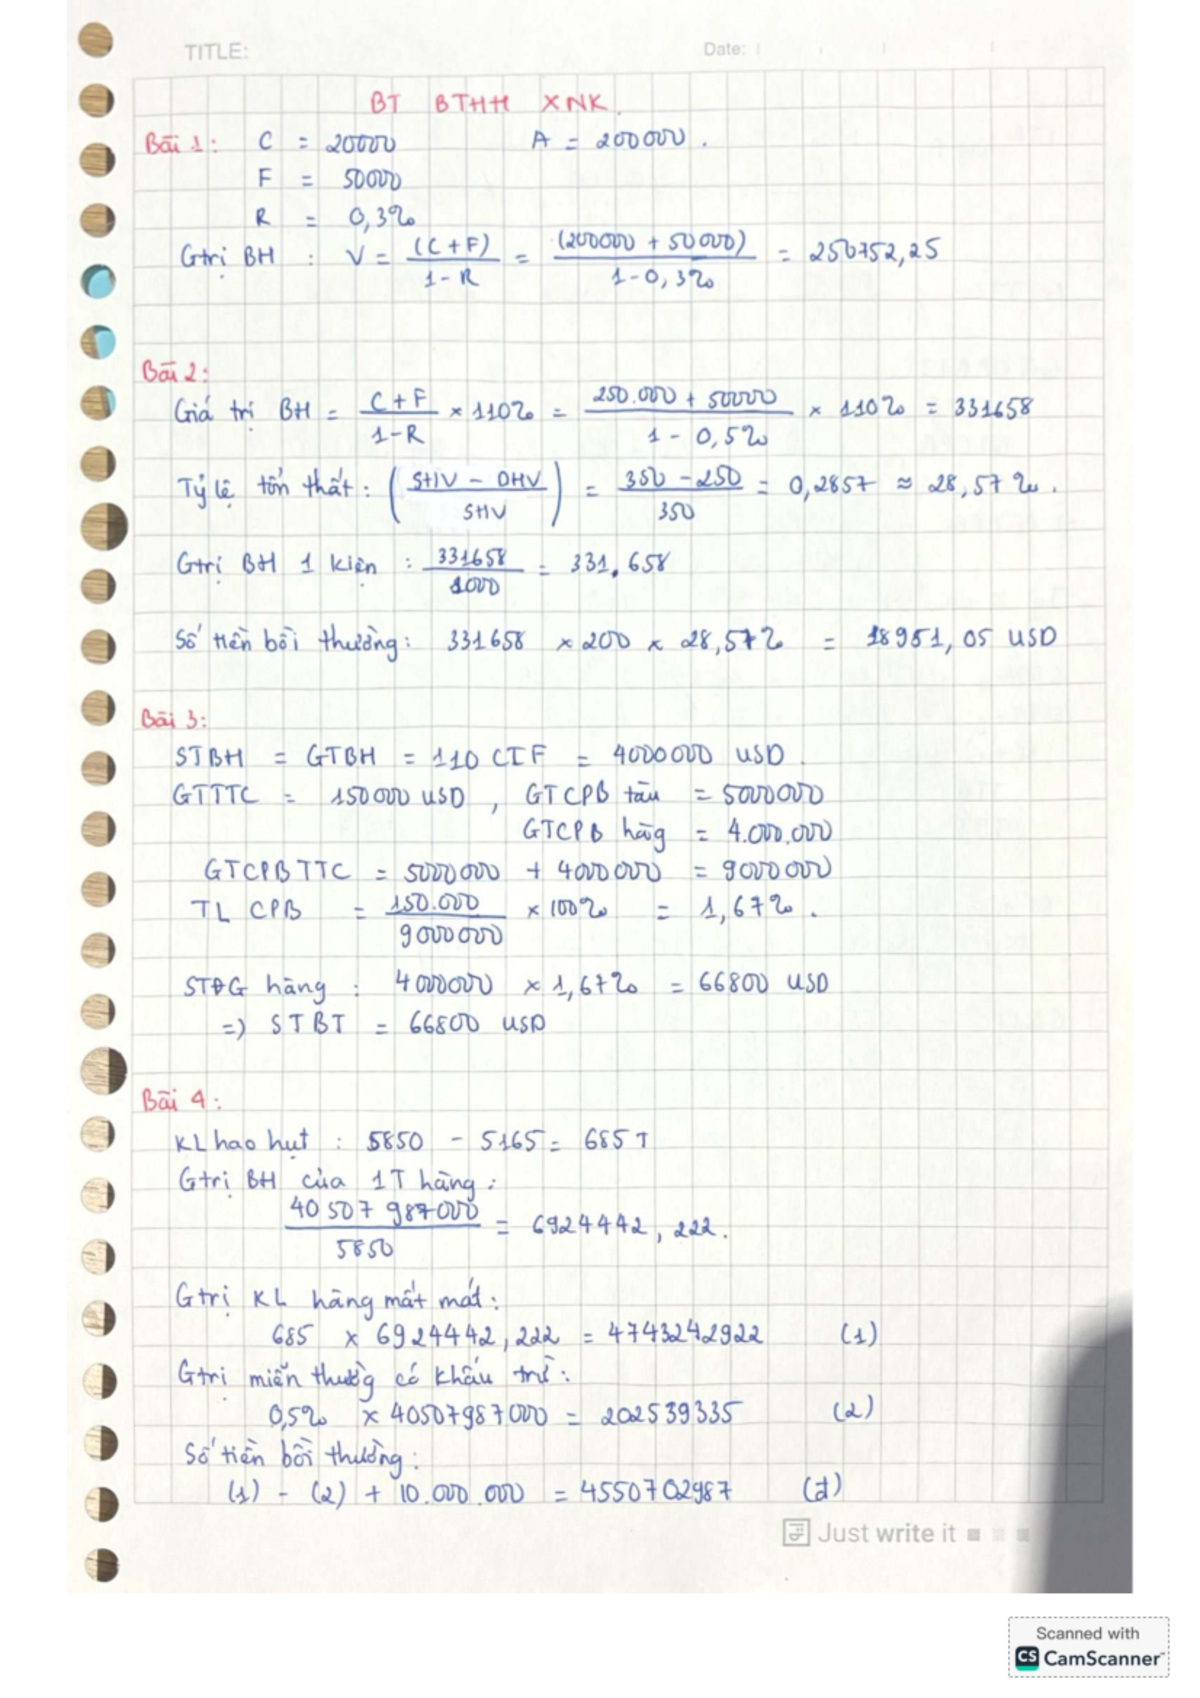 TITLE:
Date:
BT BTHH XNK.
Bài 1: C = 20000 A = 200000.
F = 50000
R = 0,3%
Gtrị BH : V = (C+F) / 1-R = (200000 + 50000) / 1-0,3% = 250752,25
Bài 2:
Giá trị BH = C+F / 1-R × 110% = 250.000 + 50000 / 1 - 0,5% × 110% = 331658
Tỷ lệ tổn thất : (SHV - DHV / SHV) = 350 - 250 / 350 = 0,2857 ≈ 28,57%.
Gtrị BH 1 kiện : 331658 / 1000 = 331,658
Số tiền bồi thường: 331658 × 200 × 28,57% = 18951,05 USD
Bài 3:
STBH = GTBH = 110 CIF = 4000000 USD.
GTTTC = 150000 USD, GTCPB tàu = 5000000
GTCPB hàg = 4.000.000
GTCPB TTC = 5000000 + 4000000 = 9000000
TL CPB = 150.000 / 9000000 × 100% = 1,67%.
STĐG hàng : 4000000 × 1,67% = 66800 USD
=) STBT = 66800 USD
Bài 4:
KL hao hụt : 5850 - 5165 = 685 T
Gtrị BH của 1T hàng:
40 507 987000 / 5850 = 6924442,222.
Gtrị KL hàng mất mát:
685 × 6924442,222 = 4743242922 (1)
Gtrị miễn thườg có khấu trừ:
0,5% × 40507987000 = 202539335 (2)
Số tiền bồi thường:
(1) - (2) + 10.000.000 = 4550702987 (đ)
Just write it
Scanned with
CS CamScanner